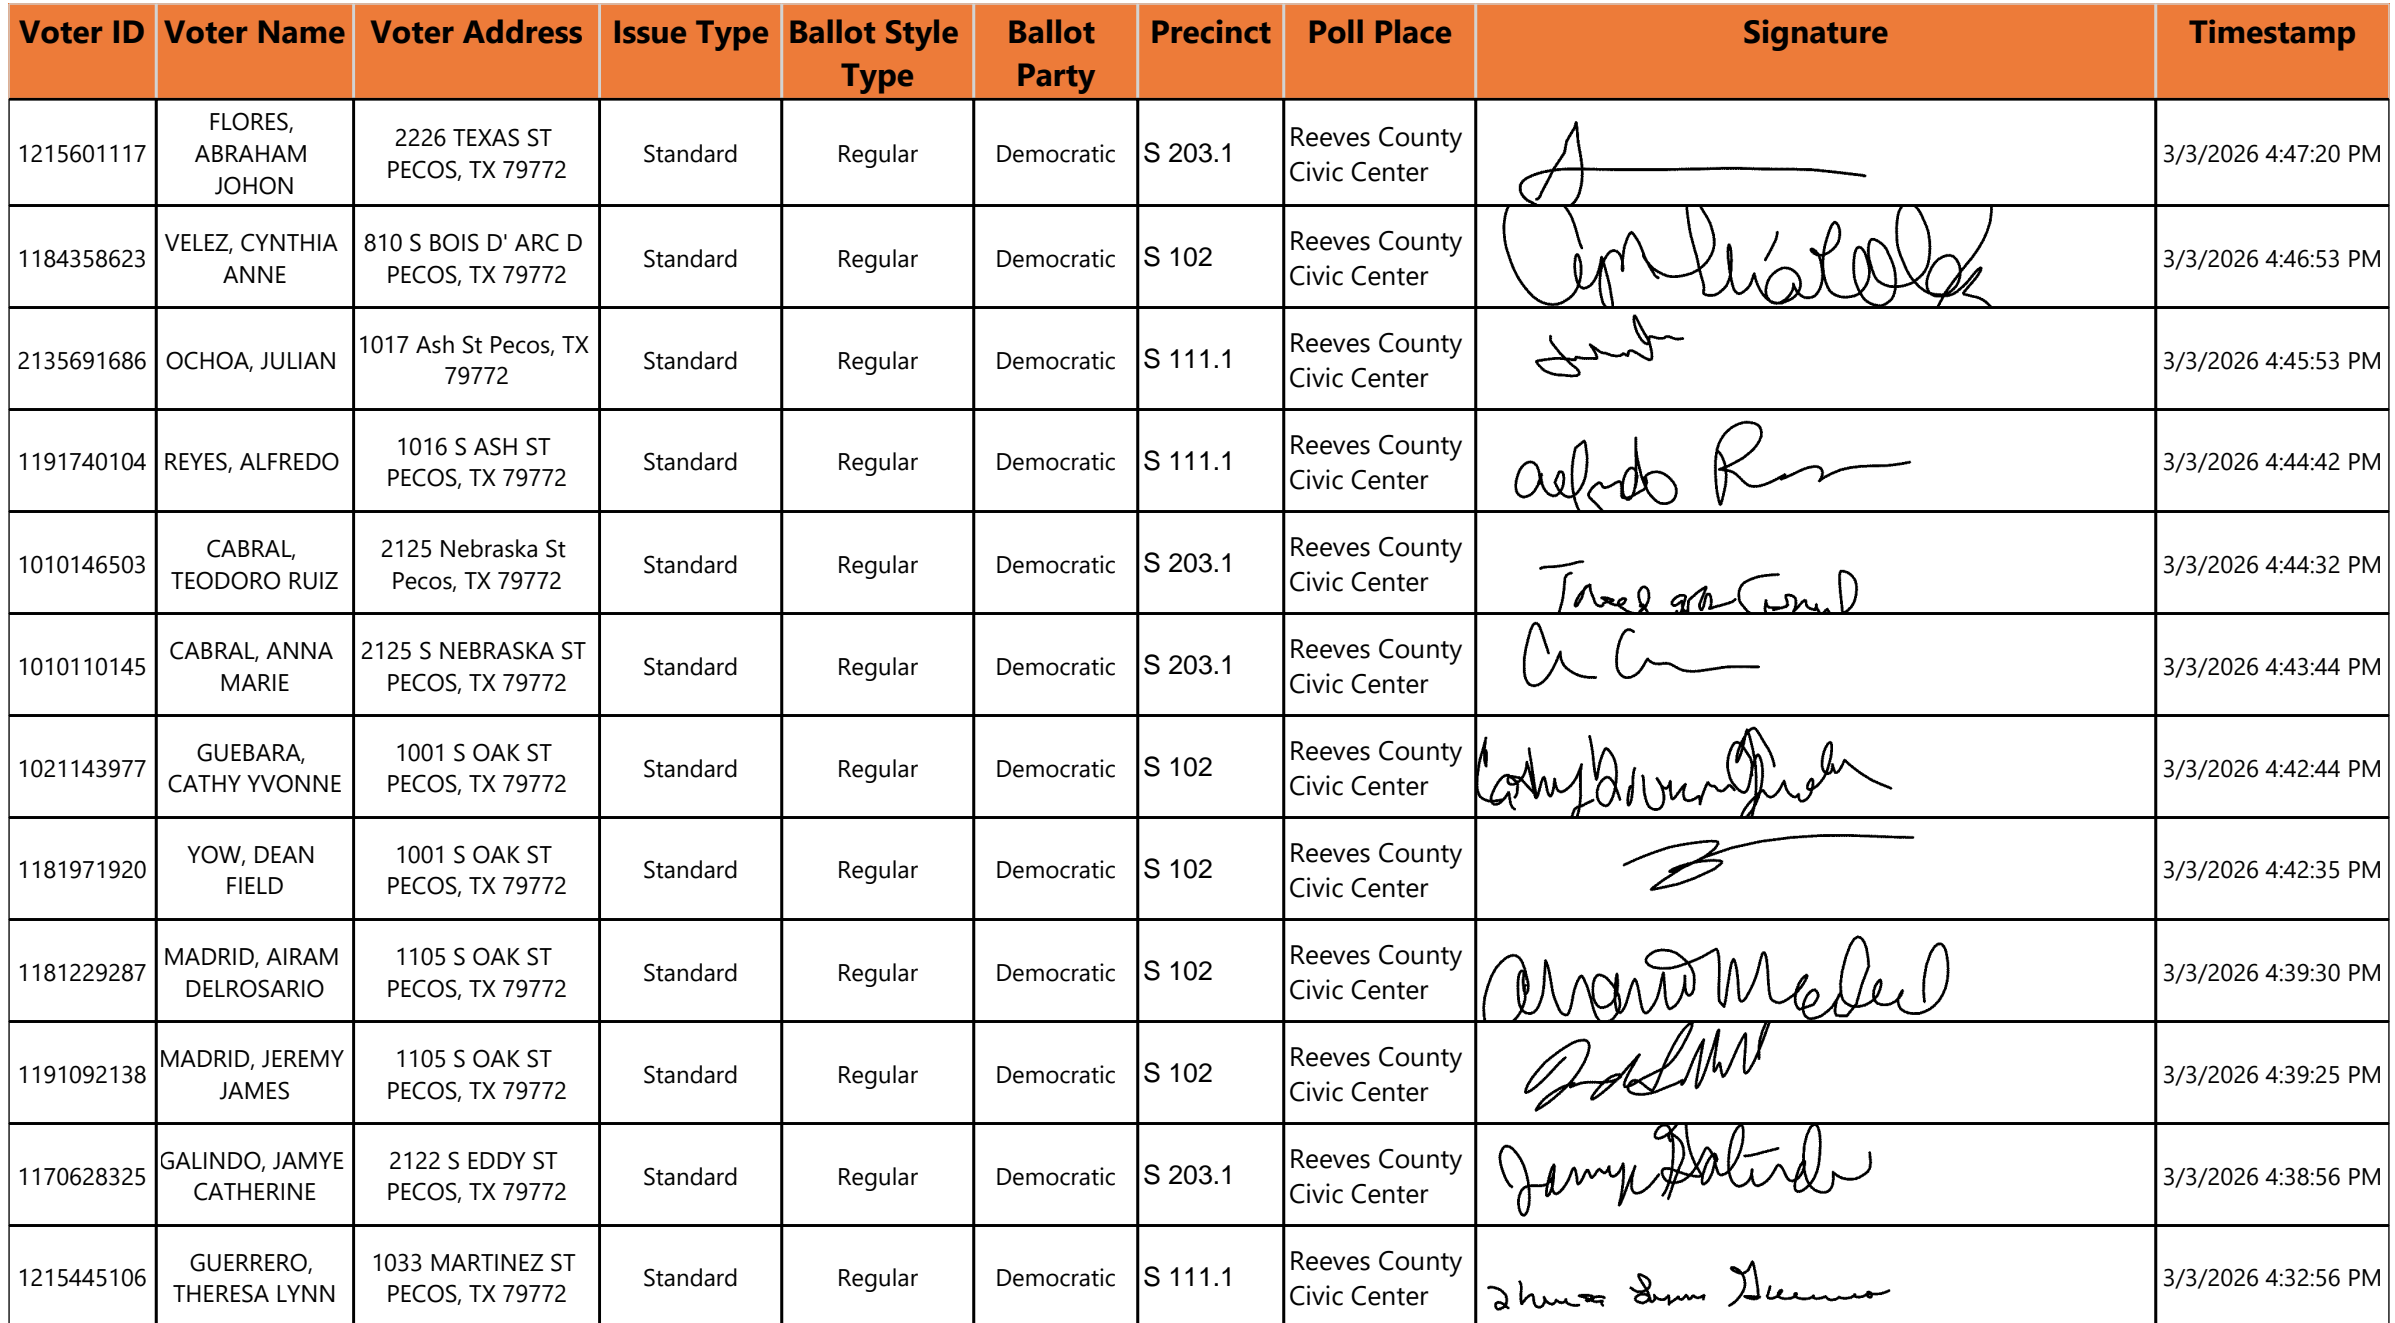 Voter ID Voter Name Voter Address Issue Type Ballot Style Type Ballot Party Precinct Poll Place Signature Timestamp
1215601117 FLORES, ABRAHAM JOHON 2226 TEXAS ST PECOS, TX 79772 Standard Regular Democratic S 203.1 Reeves County Civic Center 3/3/2026 4:47:20 PM
1184358623 VELEZ, CYNTHIA ANNE 810 S BOIS D' ARC D PECOS, TX 79772 Standard Regular Democratic S 102 Reeves County Civic Center 3/3/2026 4:46:53 PM
2135691686 OCHOA, JULIAN 1017 Ash St Pecos, TX 79772 Standard Regular Democratic S 111.1 Reeves County Civic Center 3/3/2026 4:45:53 PM
1191740104 REYES, ALFREDO 1016 S ASH ST PECOS, TX 79772 Standard Regular Democratic S 111.1 Reeves County Civic Center 3/3/2026 4:44:42 PM
1010146503 CABRAL, TEODORO RUIZ 2125 Nebraska St Pecos, TX 79772 Standard Regular Democratic S 203.1 Reeves County Civic Center 3/3/2026 4:44:32 PM
1010110145 CABRAL, ANNA MARIE 2125 S NEBRASKA ST PECOS, TX 79772 Standard Regular Democratic S 203.1 Reeves County Civic Center 3/3/2026 4:43:44 PM
1021143977 GUEBARA, CATHY YVONNE 1001 S OAK ST PECOS, TX 79772 Standard Regular Democratic S 102 Reeves County Civic Center 3/3/2026 4:42:44 PM
1181971920 YOW, DEAN FIELD 1001 S OAK ST PECOS, TX 79772 Standard Regular Democratic S 102 Reeves County Civic Center 3/3/2026 4:42:35 PM
1181229287 MADRID, AIRAM DELROSARIO 1105 S OAK ST PECOS, TX 79772 Standard Regular Democratic S 102 Reeves County Civic Center 3/3/2026 4:39:30 PM
1191092138 MADRID, JEREMY JAMES 1105 S OAK ST PECOS, TX 79772 Standard Regular Democratic S 102 Reeves County Civic Center 3/3/2026 4:39:25 PM
1170628325 GALINDO, JAMYE CATHERINE 2122 S EDDY ST PECOS, TX 79772 Standard Regular Democratic S 203.1 Reeves County Civic Center 3/3/2026 4:38:56 PM
1215445106 GUERRERO, THERESA LYNN 1033 MARTINEZ ST PECOS, TX 79772 Standard Regular Democratic S 111.1 Reeves County Civic Center 3/3/2026 4:32:56 PM